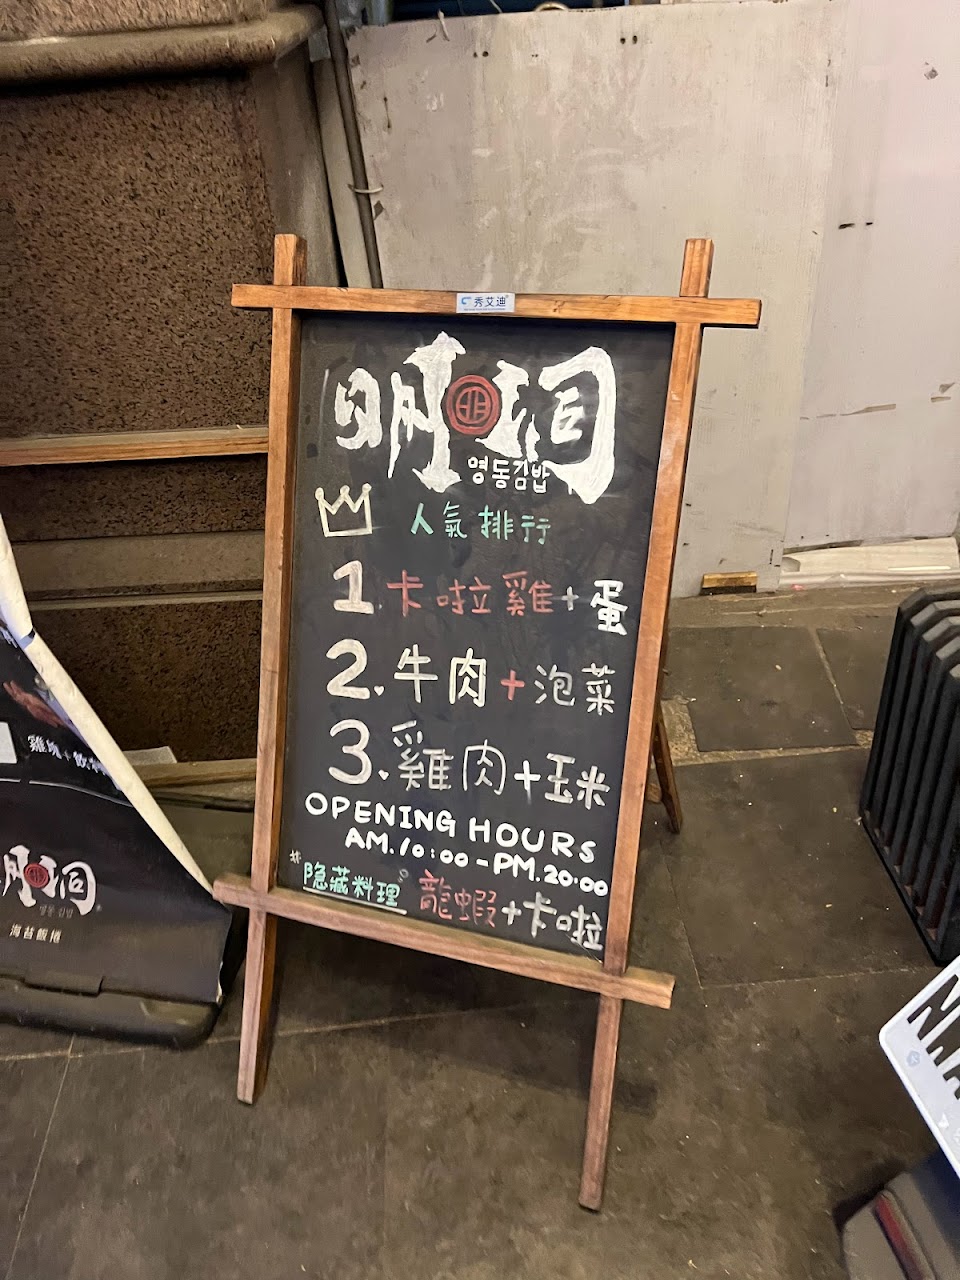 秀艾迪
明洞
명동김밥
人氣排行
1.卡啦雞+蛋
2.牛肉+泡菜
3.雞肉+玉米
OPENING HOURS
AM.10:00-PM.20:00
隐藏料理 龍蝦+卡啦
明洞
海苔飯捲